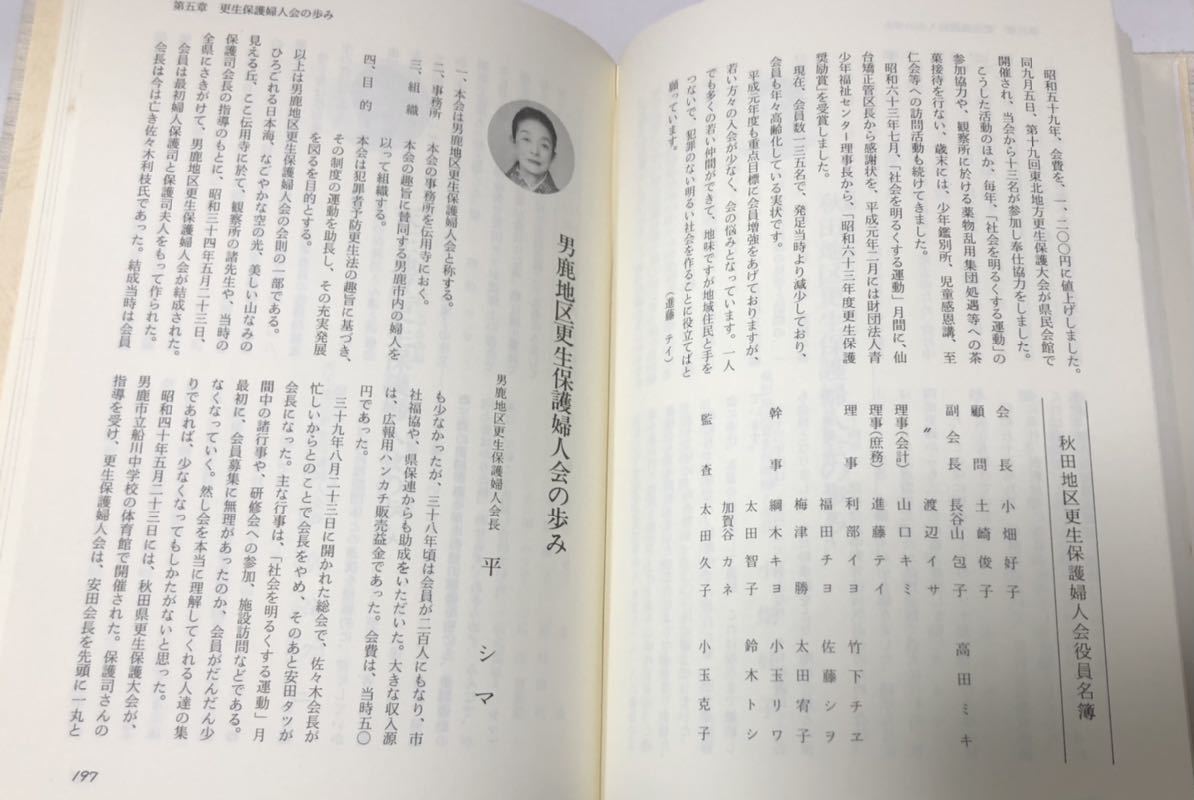 昭和五十九年、会費を、一、二〇〇円に値上げしました。
同九月五日、第十九回東北地方更生保護大会が県民会館で
開催され、当会から十三名が参加し奉仕協力をしました。
こうした活動のほか、毎年、「社会を明るくする運動」の
参加協力や、観察所に於ける薬物乱用集団処遇等への茶
菓接待を行ない、歳末には、少年鑑別所、児童感恩講、至
仁会等への訪問活動も続けてきました。
昭和六十三年七月、「社会を明るくする運動」月間に、仙
台矯正管区長から感謝状を、平成元年二月には財団法人青
少年福祉センター理事長から、「昭和六十三年度更生保護
奨励賞」を受賞しました。
現在、会員数一三五名で、発足当時より減少しており、
会員も年々高齢化している実状です。
平成元年度も重点目標に会員増強をあげておりますが、
若い方々の入会が少なく、会の悩みとなっています。一人
でも多くの若い仲間ができて、地味ですが地域住民と手を
つないで、犯罪のない明るい社会を作ることに役立てばと
願っています。
（進藤 テイ）
秋田地区更生保護婦人会役員名簿
会長 小畑好子
顧問 土崎俊子 高田ミキ
副会長 長谷山包子
〃 渡辺イサ
理事（会計） 山口キミ
理事（庶務） 進藤テイ
理事 利部イヨ 竹下チヱ
福田チヨ 佐藤シヲ
梅津勝 太田宥子
幹事 綱木キヨ 小玉リワ
太田智子 鈴木トシ
加賀谷カネ
監査 太田久子 小玉克子
第五章 更生保護婦人会の歩み
男鹿地区更生保護婦人会の歩み
男鹿地区更生保護婦人会長 平シマ
一、本会は男鹿地区更生保護婦人会と称する。
二、事務所 本会の事務所を伝用寺におく。
三、組織 本会の趣旨に賛同する男鹿市内の婦人を
以って組織する。
四、目的 本会は犯罪者予防更生法の趣旨に基づき、
その制度の運動を助長し、その充実発展
を図るを目的とする。
以上は男鹿地区更生保護婦人会の会則の一部である。
ひろごれる日本海、なごやかな空の光、美しい山なみの
見える丘、ここ伝用寺に於て、観察所の諸先生や、当時の
保護司会長の指導のもとに、昭和三十四年五月二十三日、
全県にさきがけて、男鹿地区更生保護婦人会が結成された。
会員は最初婦人保護司と保護司夫人をもって作られた。
会長は今は亡き佐々木利枝氏であった。結成当時は会員
も少なかったが、三十八年頃は会員が二百人にもなり、市
社福協や、県保連からも助成をいただいた。大きな収入源
は、広報用ハンカチ販売益金であった。会費は、当時五〇
円であった。
三十九年八月二十三に開かれた総会で、佐々木会長が
忙しいからとのことで会長をやめ、そのあと安田タツが
会長になった。主な行事は、「社会を明るくする運動」月
間中の諸行事や、研修会への参加、施設訪問などである。
最初に、会員募集に無理があったのか、会員がだんだん少
なくなっていく。然し会を本当に理解してくれる人達の集
りであれば、少なくなってもしかたがないと思った。
昭和四十年五月二十三日には、秋田県更生保護大会が、
男鹿市立船川中学校の体育館で開催された。保護司さんの
指導を受け、更生保護婦人会は、安田会長を先頭に一丸と
197